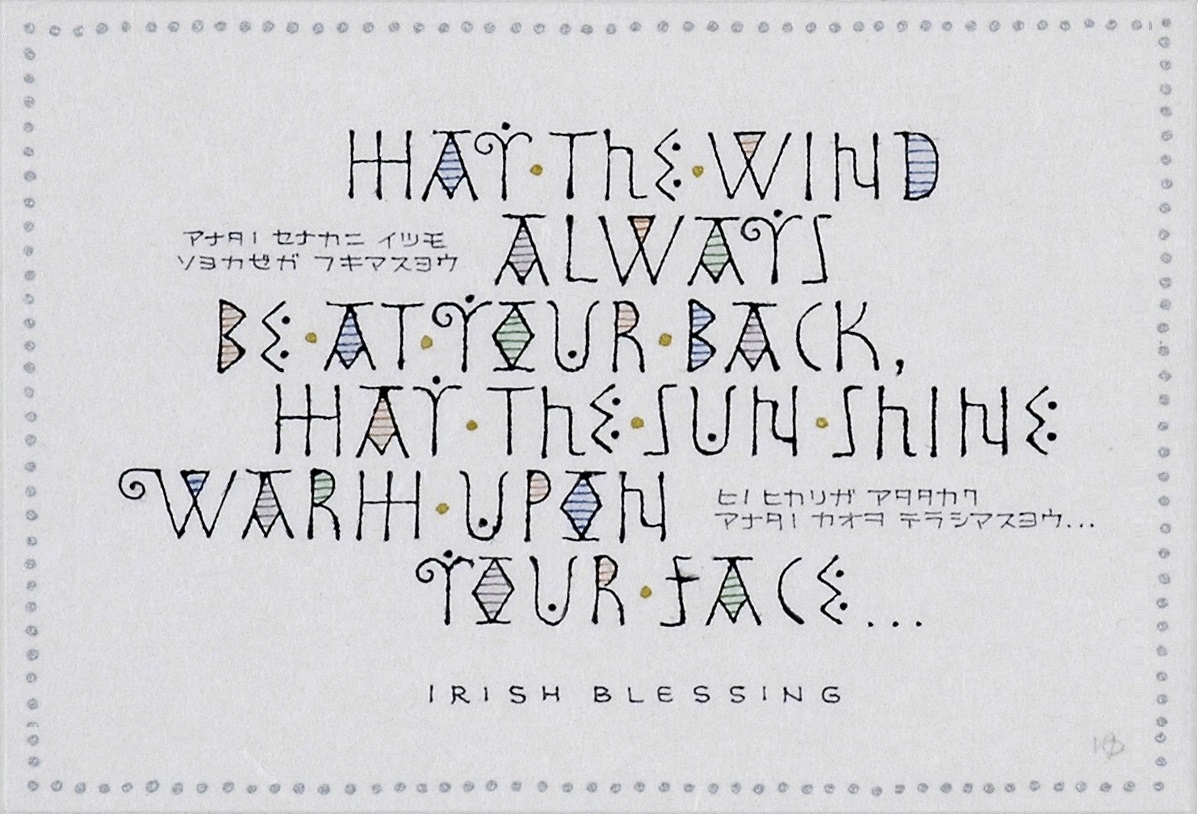 MAY THE WIND
ALWAYS
アナタノ セナカニ イツモ
ソヨカゼガ フキマスヨウ
BE AT YOUR BACK,
MAY THE SUN SHINE
WARM UPON
ヒノ ヒカリガ アタタカク
アナタノ カオヲ テラシマスヨウ...
YOUR FACE...
IRISH BLESSING